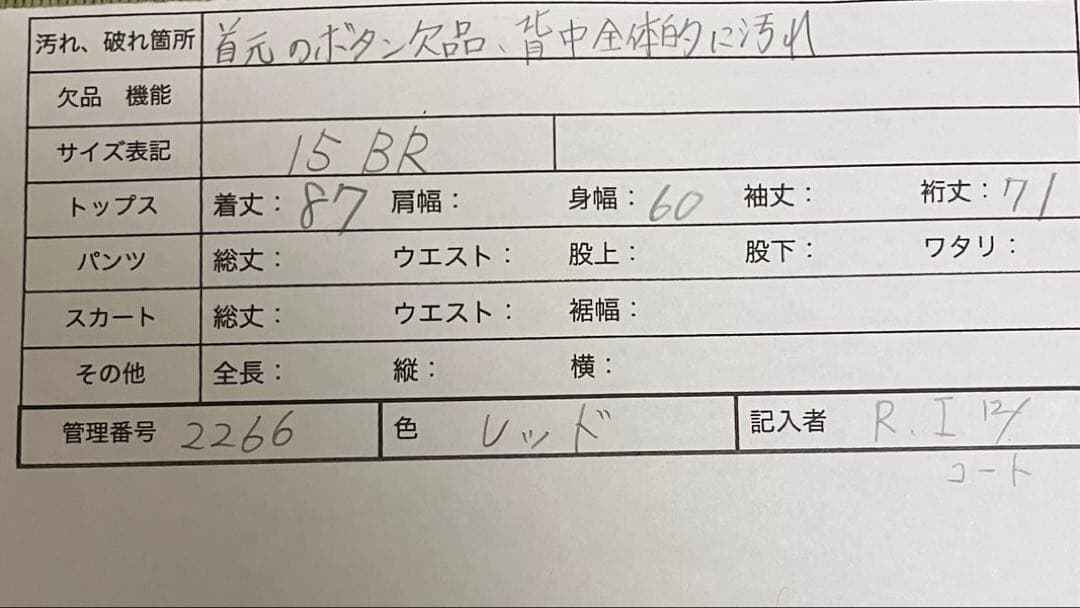 汚れ、破れ箇所 首元のボタン欠品、背中全体的に汚れ
欠品 機能
サイズ表記 15 BR
トップス 着丈：87 肩幅： 身幅：60 袖丈： 裄丈：71
パンツ 総丈： ウエスト： 股上： 股下： ワタリ：
スカート 総丈： ウエスト： 裾幅：
その他 全長： 縦： 横：
管理番号 2266 色 レッド 記入者 R.I
コート